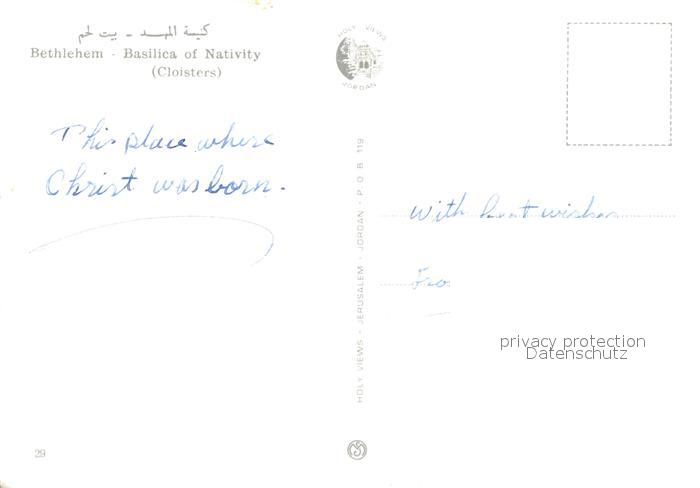 كنيسة المهد - بيت لحم
Bethlehem - Basilica of Nativity
(Cloisters)
This place where
Christ was born.
29
HOLY VIEWS
JORDAN
HOLY VIEWS - JERUSALEM - JORDAN - P.O.B. 119
With best wishes
privacy protection
Datenschutz